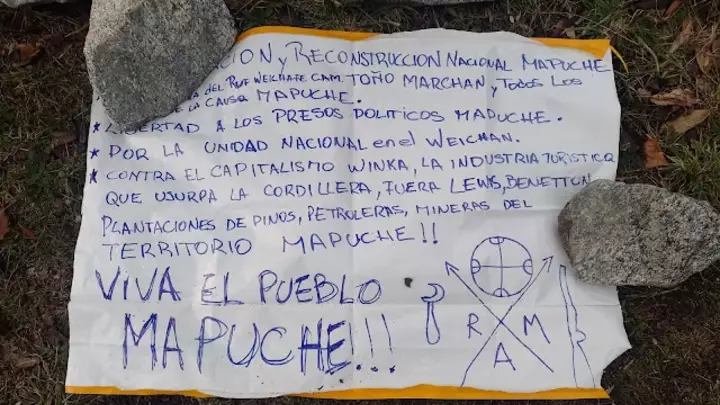 CION y RECONSTRUCCION NACIONAL MAPUCHE
DEL RUF WEICHAFE CAM. TOÑO MARCHAN, y TODOS LOS
LA CAUSA MAPUCHE.
* LIBERTAD A LOS PRESOS POLITICOS MAPUCHE.
* POR LA UNIDAD NACIONAL en el WEICHAN.
* CONTRA EL CAPITALISMO WINKA, LA INDUSTRIA TURISTICA
QUE USURPA LA CORDILLERA, FUERA LEWIS, BENETTON,
PLANTACIONES DE PINOS, PETROLERAS, MINERAS DEL
TERRITORIO MAPUCHE!!
VIVA EL PUEBLO
MAPUCHE!!!
R A M